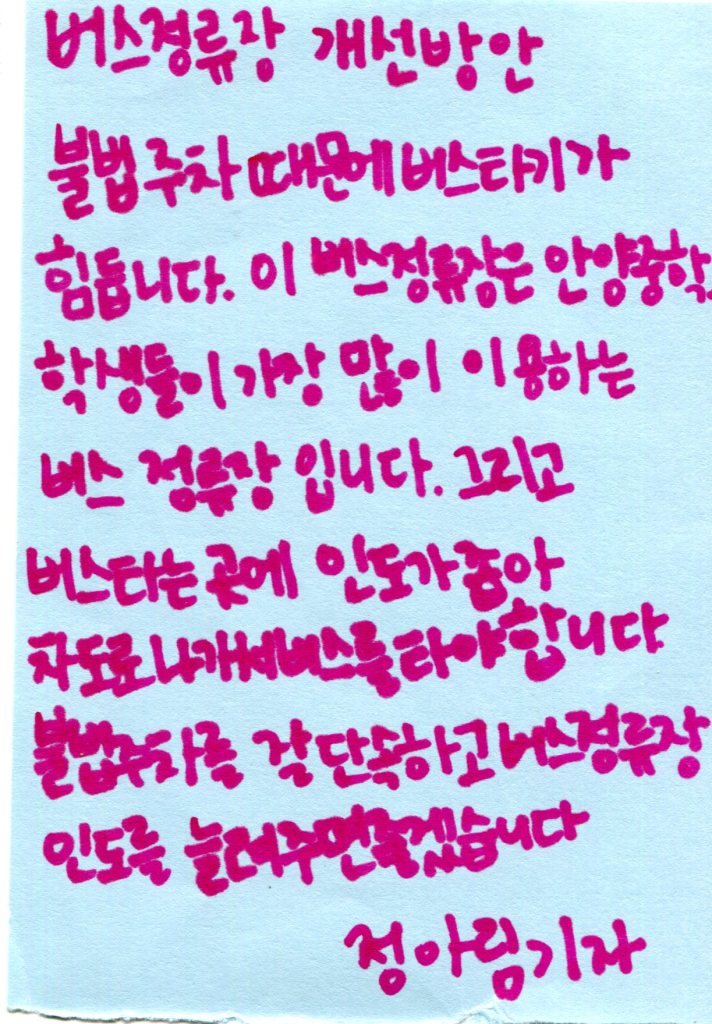 버스정류장 개선방안
불법 주차 때문에 버스타기가
힘듭니다. 이 버스정류장은 안양중학
학생들이 가장 많이 이용하는
버스 정류장 입니다. 그리고
버스타는 곳에 인도가 좁아
차도로 나가서 버스를 타야합니다
불법주차를 잘 단속하고 버스정류장
인도를 늘려주면 좋겠습니다
정아림기자